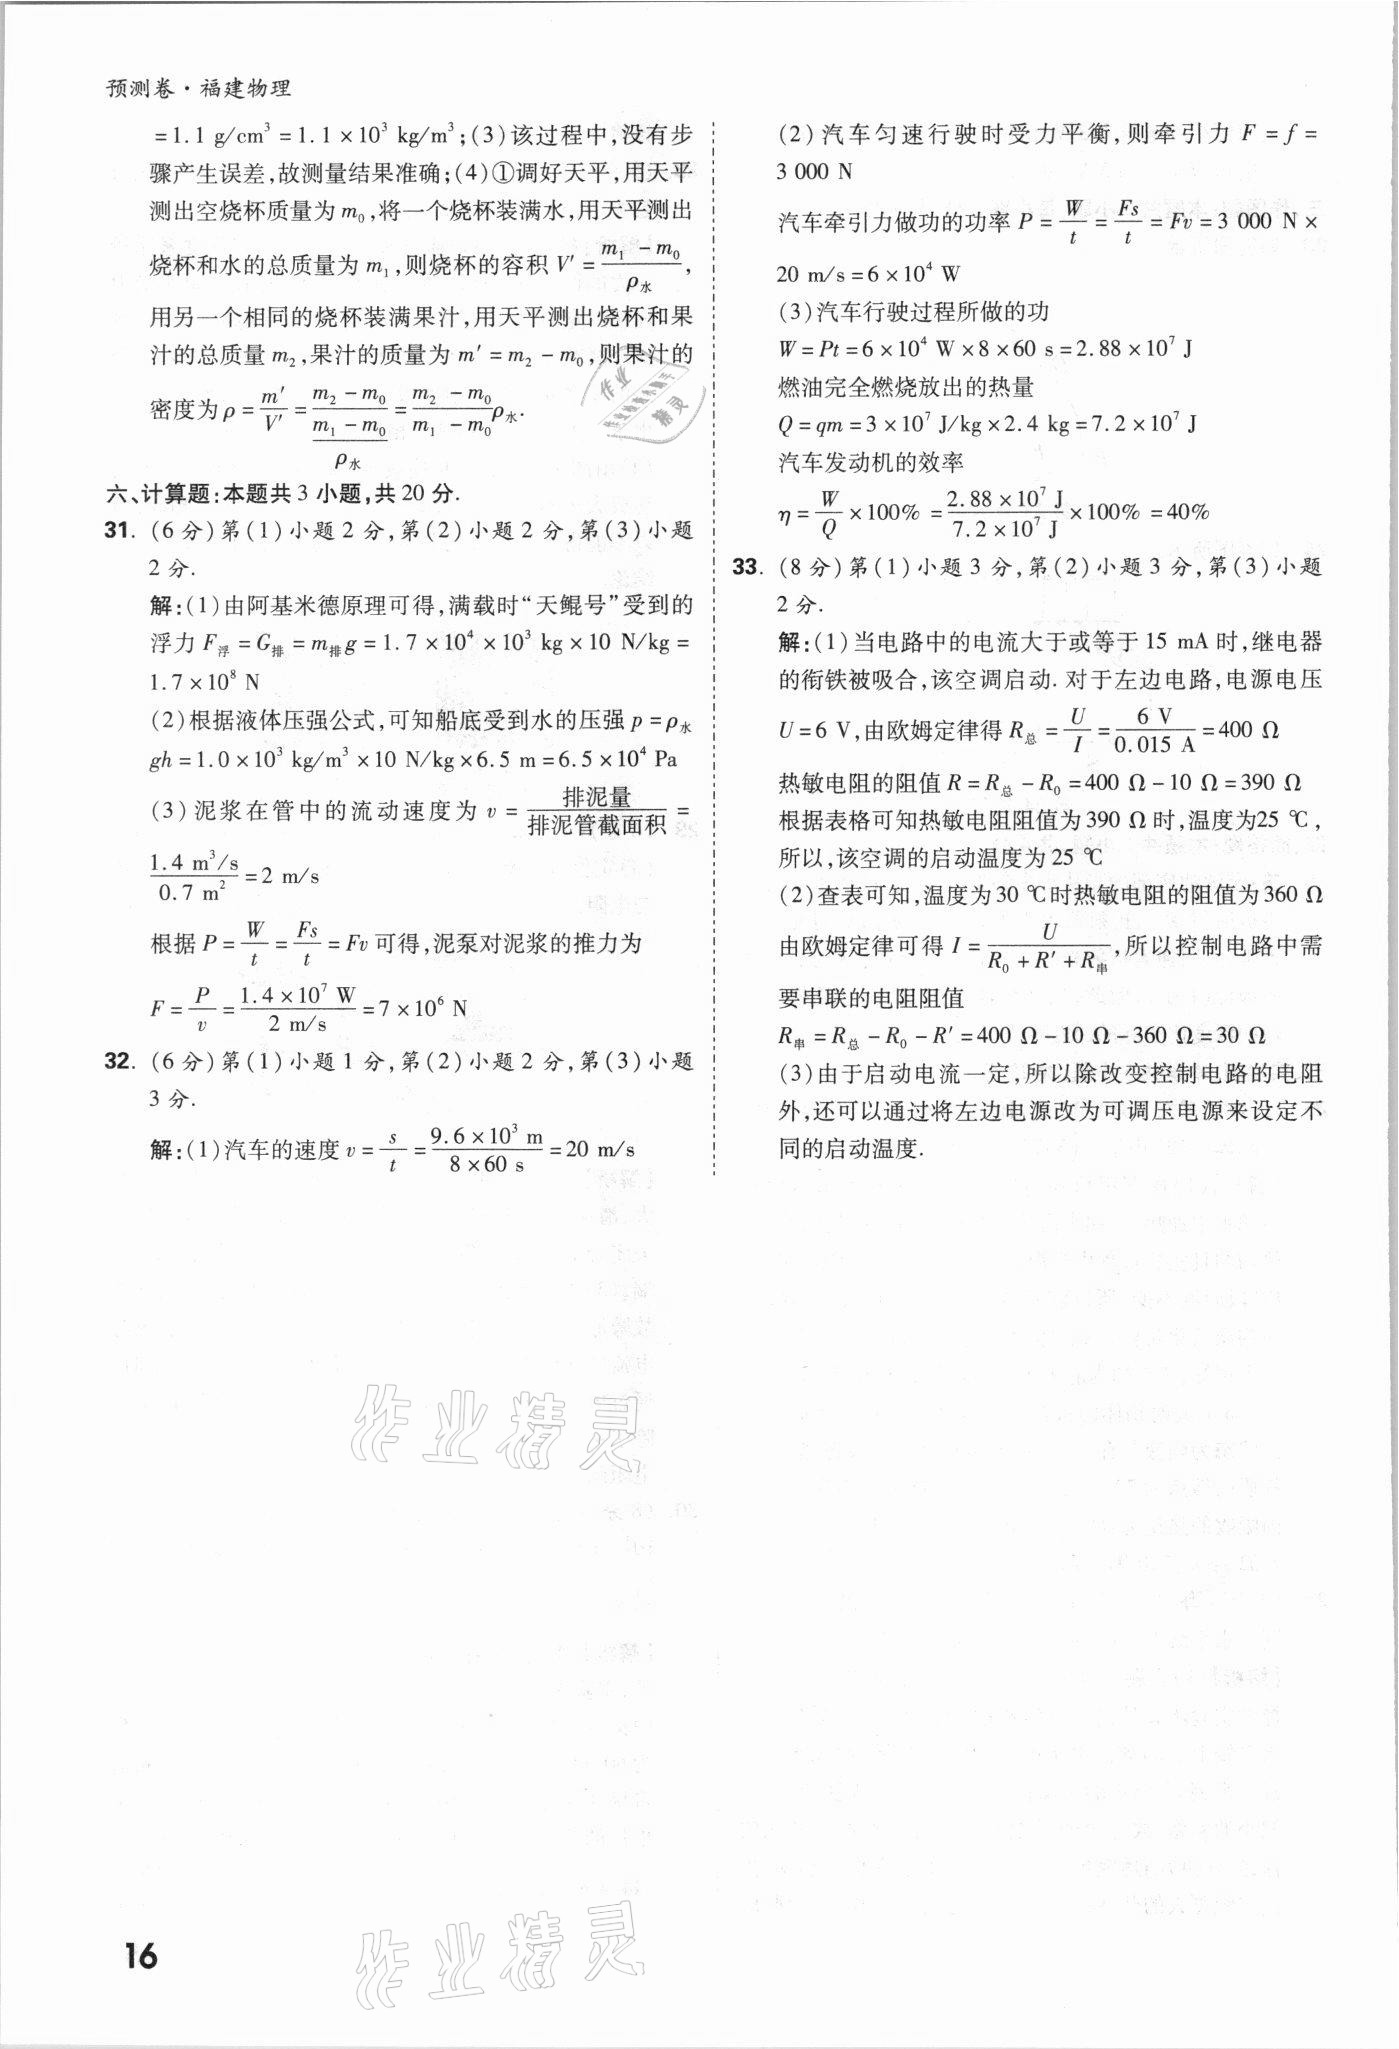 预测卷·福建物理
=1.1 g/cm³=1.1×10³ kg/m³;(3)该过程中,没有步
骤产生误差,故测量结果准确;(4)①调好天平,用天平
测出空烧杯质量为m₀,将一个烧杯装满水,用天平测出
烧杯和水的总质量为m₁,则烧杯的容积V′=(m₁-m₀)/ρ水,
用另一个相同的烧杯装满果汁,用天平测出烧杯和果
汁的总质量m₂,果汁的质量为m′=m₂-m₀,则果汁的
密度为ρ=m′/V′=(m₂-m₀)/((m₁-m₀)/ρ水)=(m₂-m₀)/(m₁-m₀)ρ水.
六、计算题:本题共3小题,共20分.
31. (6分)第(1)小题2分,第(2)小题2分,第(3)小题
2分.
解:(1)由阿基米德原理可得,满载时“天鲲号”受到的
浮力F浮=G排=m排g=1.7×10⁴×10³ kg×10 N/kg=
1.7×10⁸ N
(2)根据液体压强公式,可知船底受到水的压强p=ρ水
gh=1.0×10³ kg/m³×10 N/kg×6.5 m=6.5×10⁴ Pa
(3)泥浆在管中的流动速度为v=排泥量/排泥管截面积=
1.4 m³/s/0.7 m²=2 m/s
根据P=W/t=Fs/t=Fv可得,泥泵对泥浆的推力为
F=P/v=1.4×10⁷ W/2 m/s=7×10⁶ N
32. (6分)第(1)小题1分,第(2)小题2分,第(3)小题
3分.
解:(1)汽车的速度v=s/t=9.6×10³ m/8×60 s=20 m/s
(2)汽车匀速行驶时受力平衡,则牵引力F=f=
3 000 N
汽车牵引力做功的功率P=W/t=Fs/t=Fv=3 000 N×
20 m/s=6×10⁴ W
(3)汽车行驶过程所做的功
W=Pt=6×10⁴ W×8×60 s=2.88×10⁷ J
燃油完全燃烧放出的热量
Q=qm=3×10⁷ J/kg×2.4 kg=7.2×10⁷ J
汽车发动机的效率
η=W/Q×100%=2.88×10⁷ J/7.2×10⁷ J×100%=40%
33. (8分)第(1)小题3分,第(2)小题3分,第(3)小题
2分.
解:(1)当电路中的电流大于或等于15 mA时,继电器
的衔铁被吸合,该空调启动.对于左边电路,电源电压
U=6 V,由欧姆定律得R总=U/I=6 V/0.015 A=400 Ω
热敏电阻的阻值R=R总-R₀=400 Ω-10 Ω=390 Ω
根据表格可知热敏电阻阻值为390 Ω时,温度为25 ℃,
所以,该空调的启动温度为25 ℃
(2)查表可知,温度为30 ℃时热敏电阻的阻值为360 Ω
由欧姆定律可得I=U/(R₀+R′+R串),所以控制电路中需
要串联的电阻阻值
R串=R总-R₀-R′=400 Ω-10 Ω-360 Ω=30 Ω
(3)由于启动电流一定,所以除改变控制电路的电阻
外,还可以通过将左边电源改为可调压电源来设定不
同的启动温度.
作业精灵
作业精灵
16